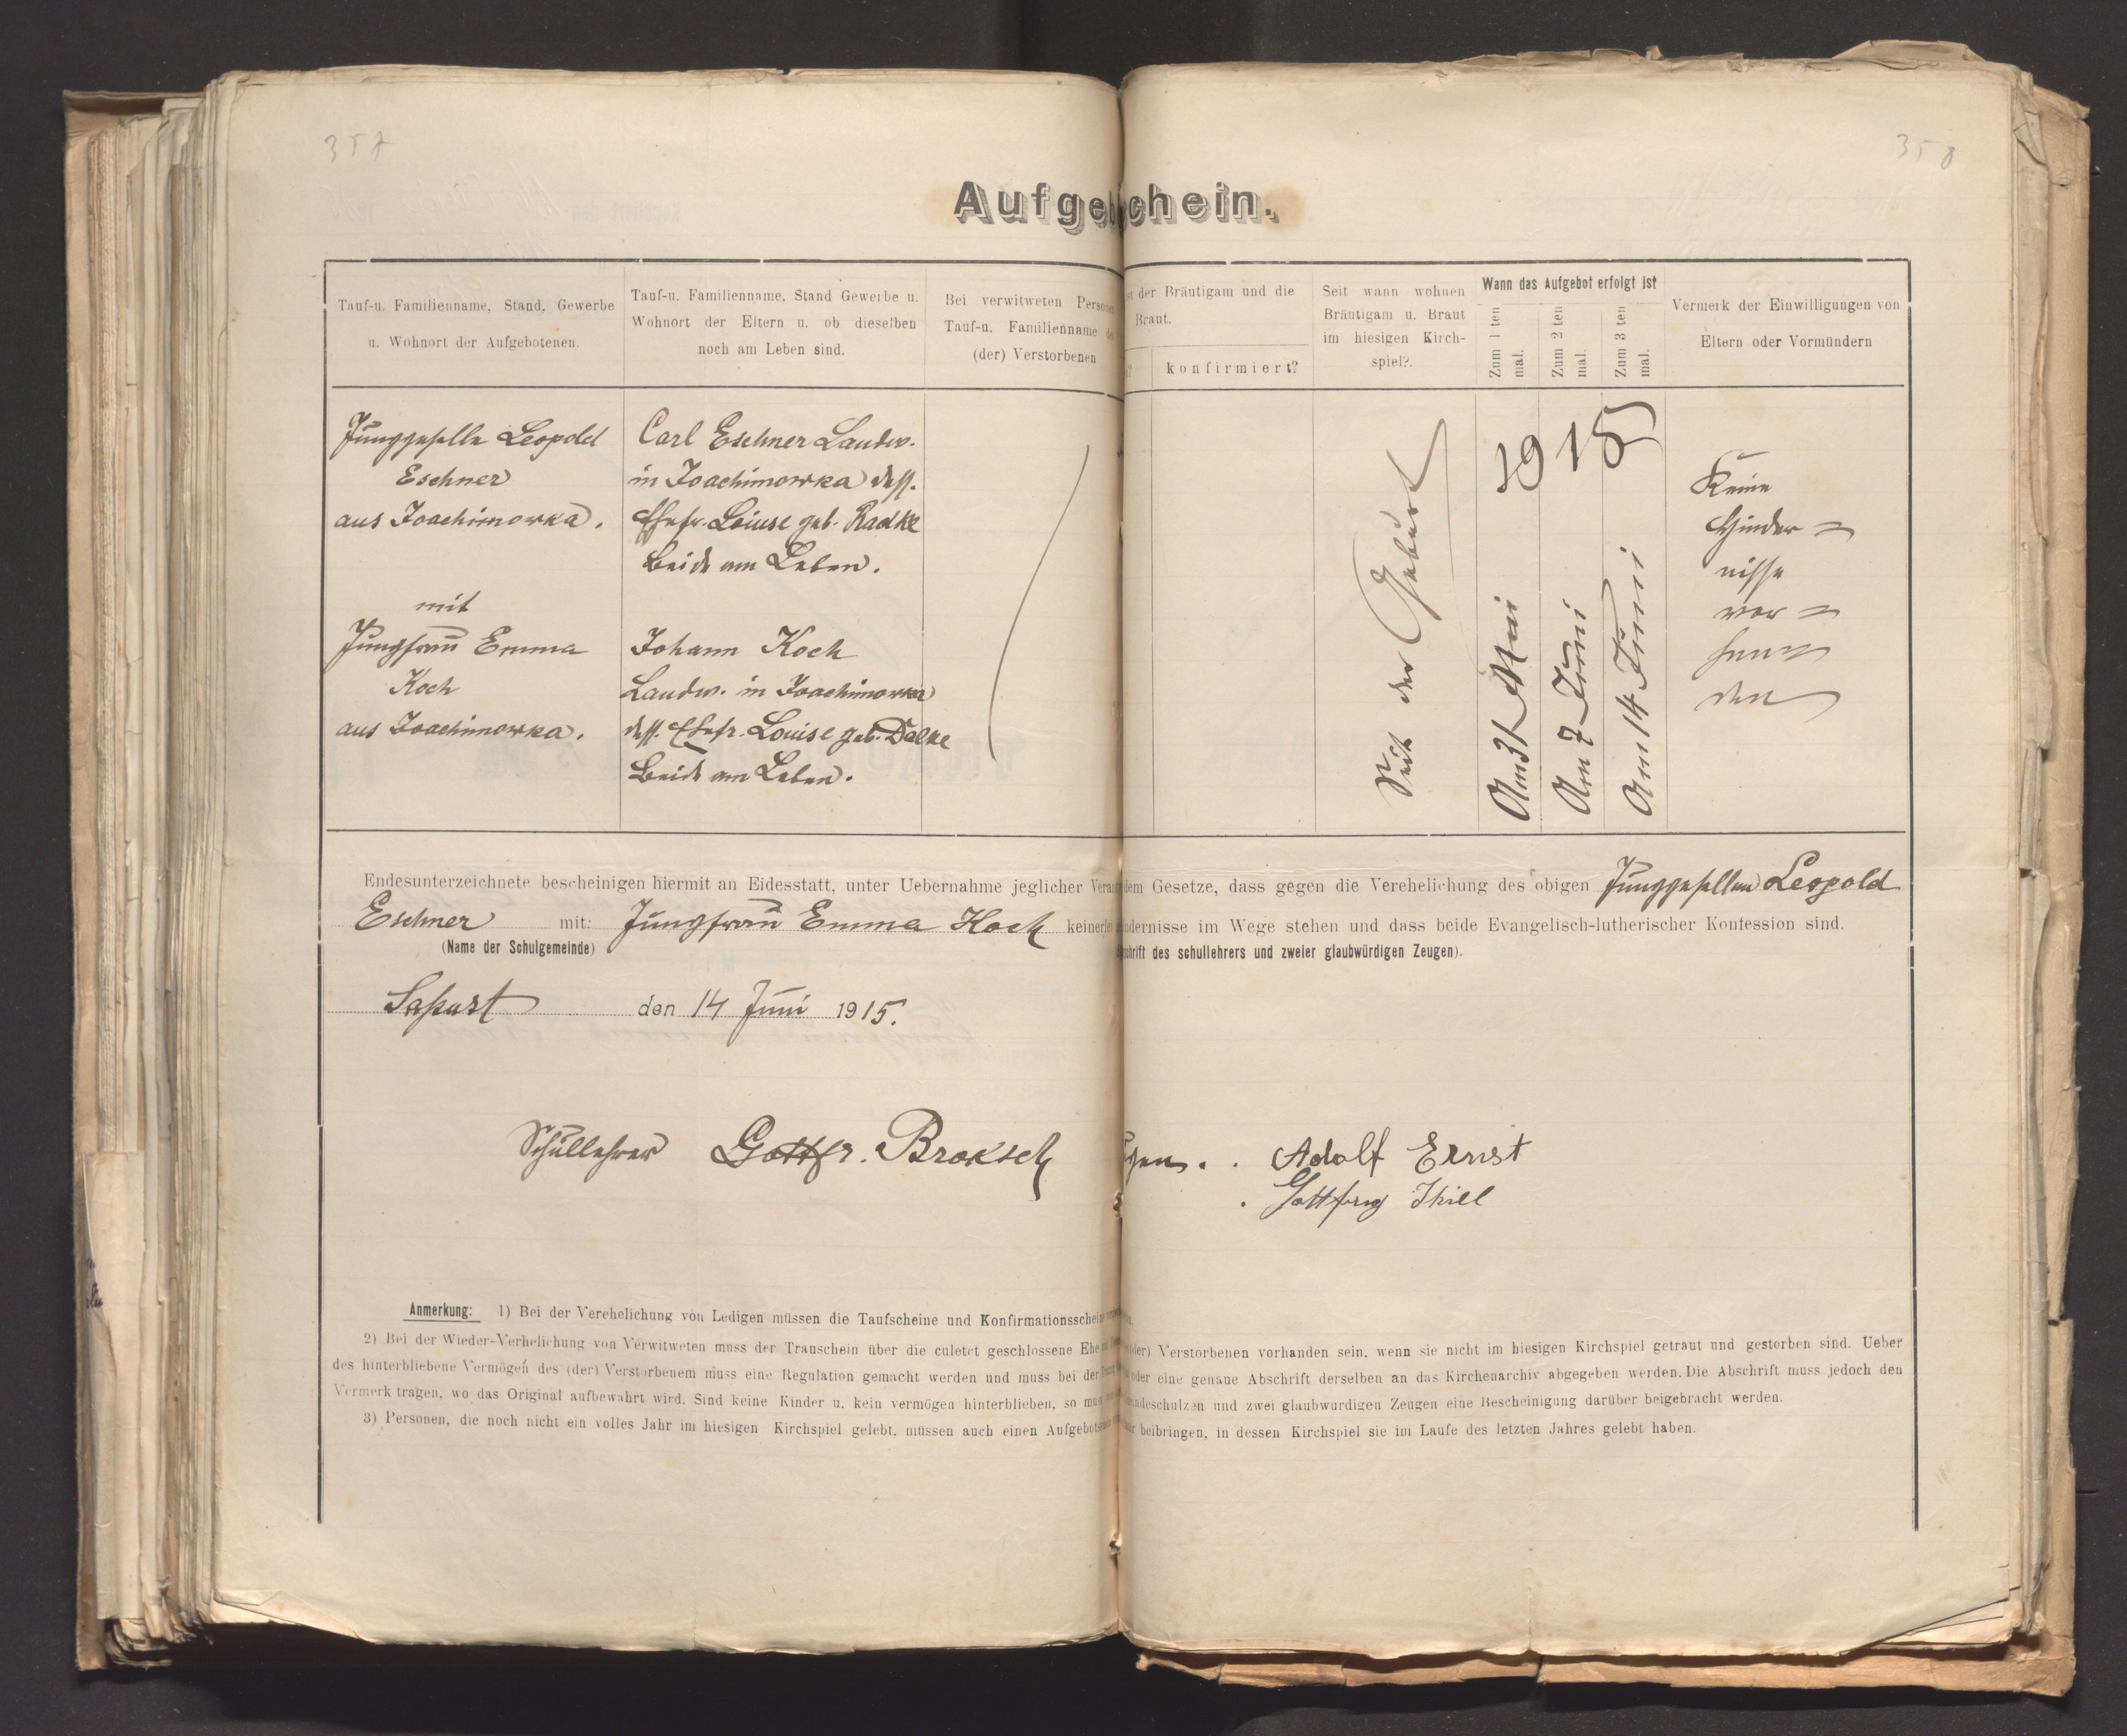 357
358
Aufge chein.
Tauf-u. Familienname, Stand, Gewerbe
u. Wohnort der Aufgebotenen.
Tauf-u. Familienname, Stand Gewerbe u.
Wohnort der Eltern u. ob dieselben
noch am Leben sind.
Bei verwitweten Personen
Tauf-u. Familienname de
(der) Verstorbenen
st der Bräutigam und die
Braut.
konfirmiert?
Seit wann wohnen
Bräutigam u. Braut
im hiesigen Kirch-
spiel?.
Wann das Aufgebot erfolgt ist
Zum 1 ten
mal.
Zum 2 ten
mal.
Zum 3 ten
mal.
Vermerk der Einwilligungen von
Eltern oder Vormündern
Junggeselle Leopold
Eschner
aus Joachimowka.
mit
Jungfrau Emma
Koch
aus Joachimowka.
Carl Eschner Landw.
in Joachimowka dess.
Ehefr. Loiuse geb. Radke
Beide am Leben.
Johann Koch
Landw. in Joachimowka
dess. Ehefr. Louise geb. Dalke
Beide am Leben.
Seit der Geburt
1915
Am 31 Mai
Am 7 Juni
Am 14 Juni
Keine
Hinder =
nisse
vor =
han
den
Endesunterzeichnete bescheinigen hiermit an Eidesstatt, unter Uebernahme jeglicher Veran dem Gesetze, dass gegen die Verehelichung des obigen Junggesellen Leopold
Eschner mit: Jungfrau Emma Koch keinerlei ndernisse im Wege stehen und dass beide Evangelisch-lutherischer Konfession sind.
(Name der Schulgemeinde) schrift des schullehrers und zweier glaubwürdigen Zeugen).
Sapust den 14 Juni 1915.
Schullehrer Gottfr. Broksch gen. . Adolf Ernst
. Gottfrig Thill
Anmerkung: 1) Bei der Verehelichung von Ledigen müssen die Taufscheine und Konfirmationsscheine
2) Bei der Wieder-Verhelichung von Verwitweten muss der Trauschein über die culetet geschlossene Ehe (der) Verstorbenen vorhanden sein, wenn sie nicht im hiesigen Kirchspiel getraut und gestorben sind. Ueber
des hinterbliebene Vermögen des (der) Verstorbenem müss eine Regulation gemacht werden und muss bei der oder eine genaue Abschrift derselben an das Kirchenarchiv abgegeben werden. Die Abschrift muss jedoch den
Vermerk tragen, wo das Original aufbewahrt wird. Sind keine Kinder u. kein vermögen hinterblieben, so mus ndeschulzen und zwei glaubwurdigen Zeugen eine Bescheinigung darüber beigebracht werden.
3) Personen, die noch nicht ein volles Jahr im hiesigen Kirchspiel gelebt, müssen auch einen Aufgebots beibringen, in dessen Kirchspiel sie im Laufe des letzten Jahres gelebt haben.